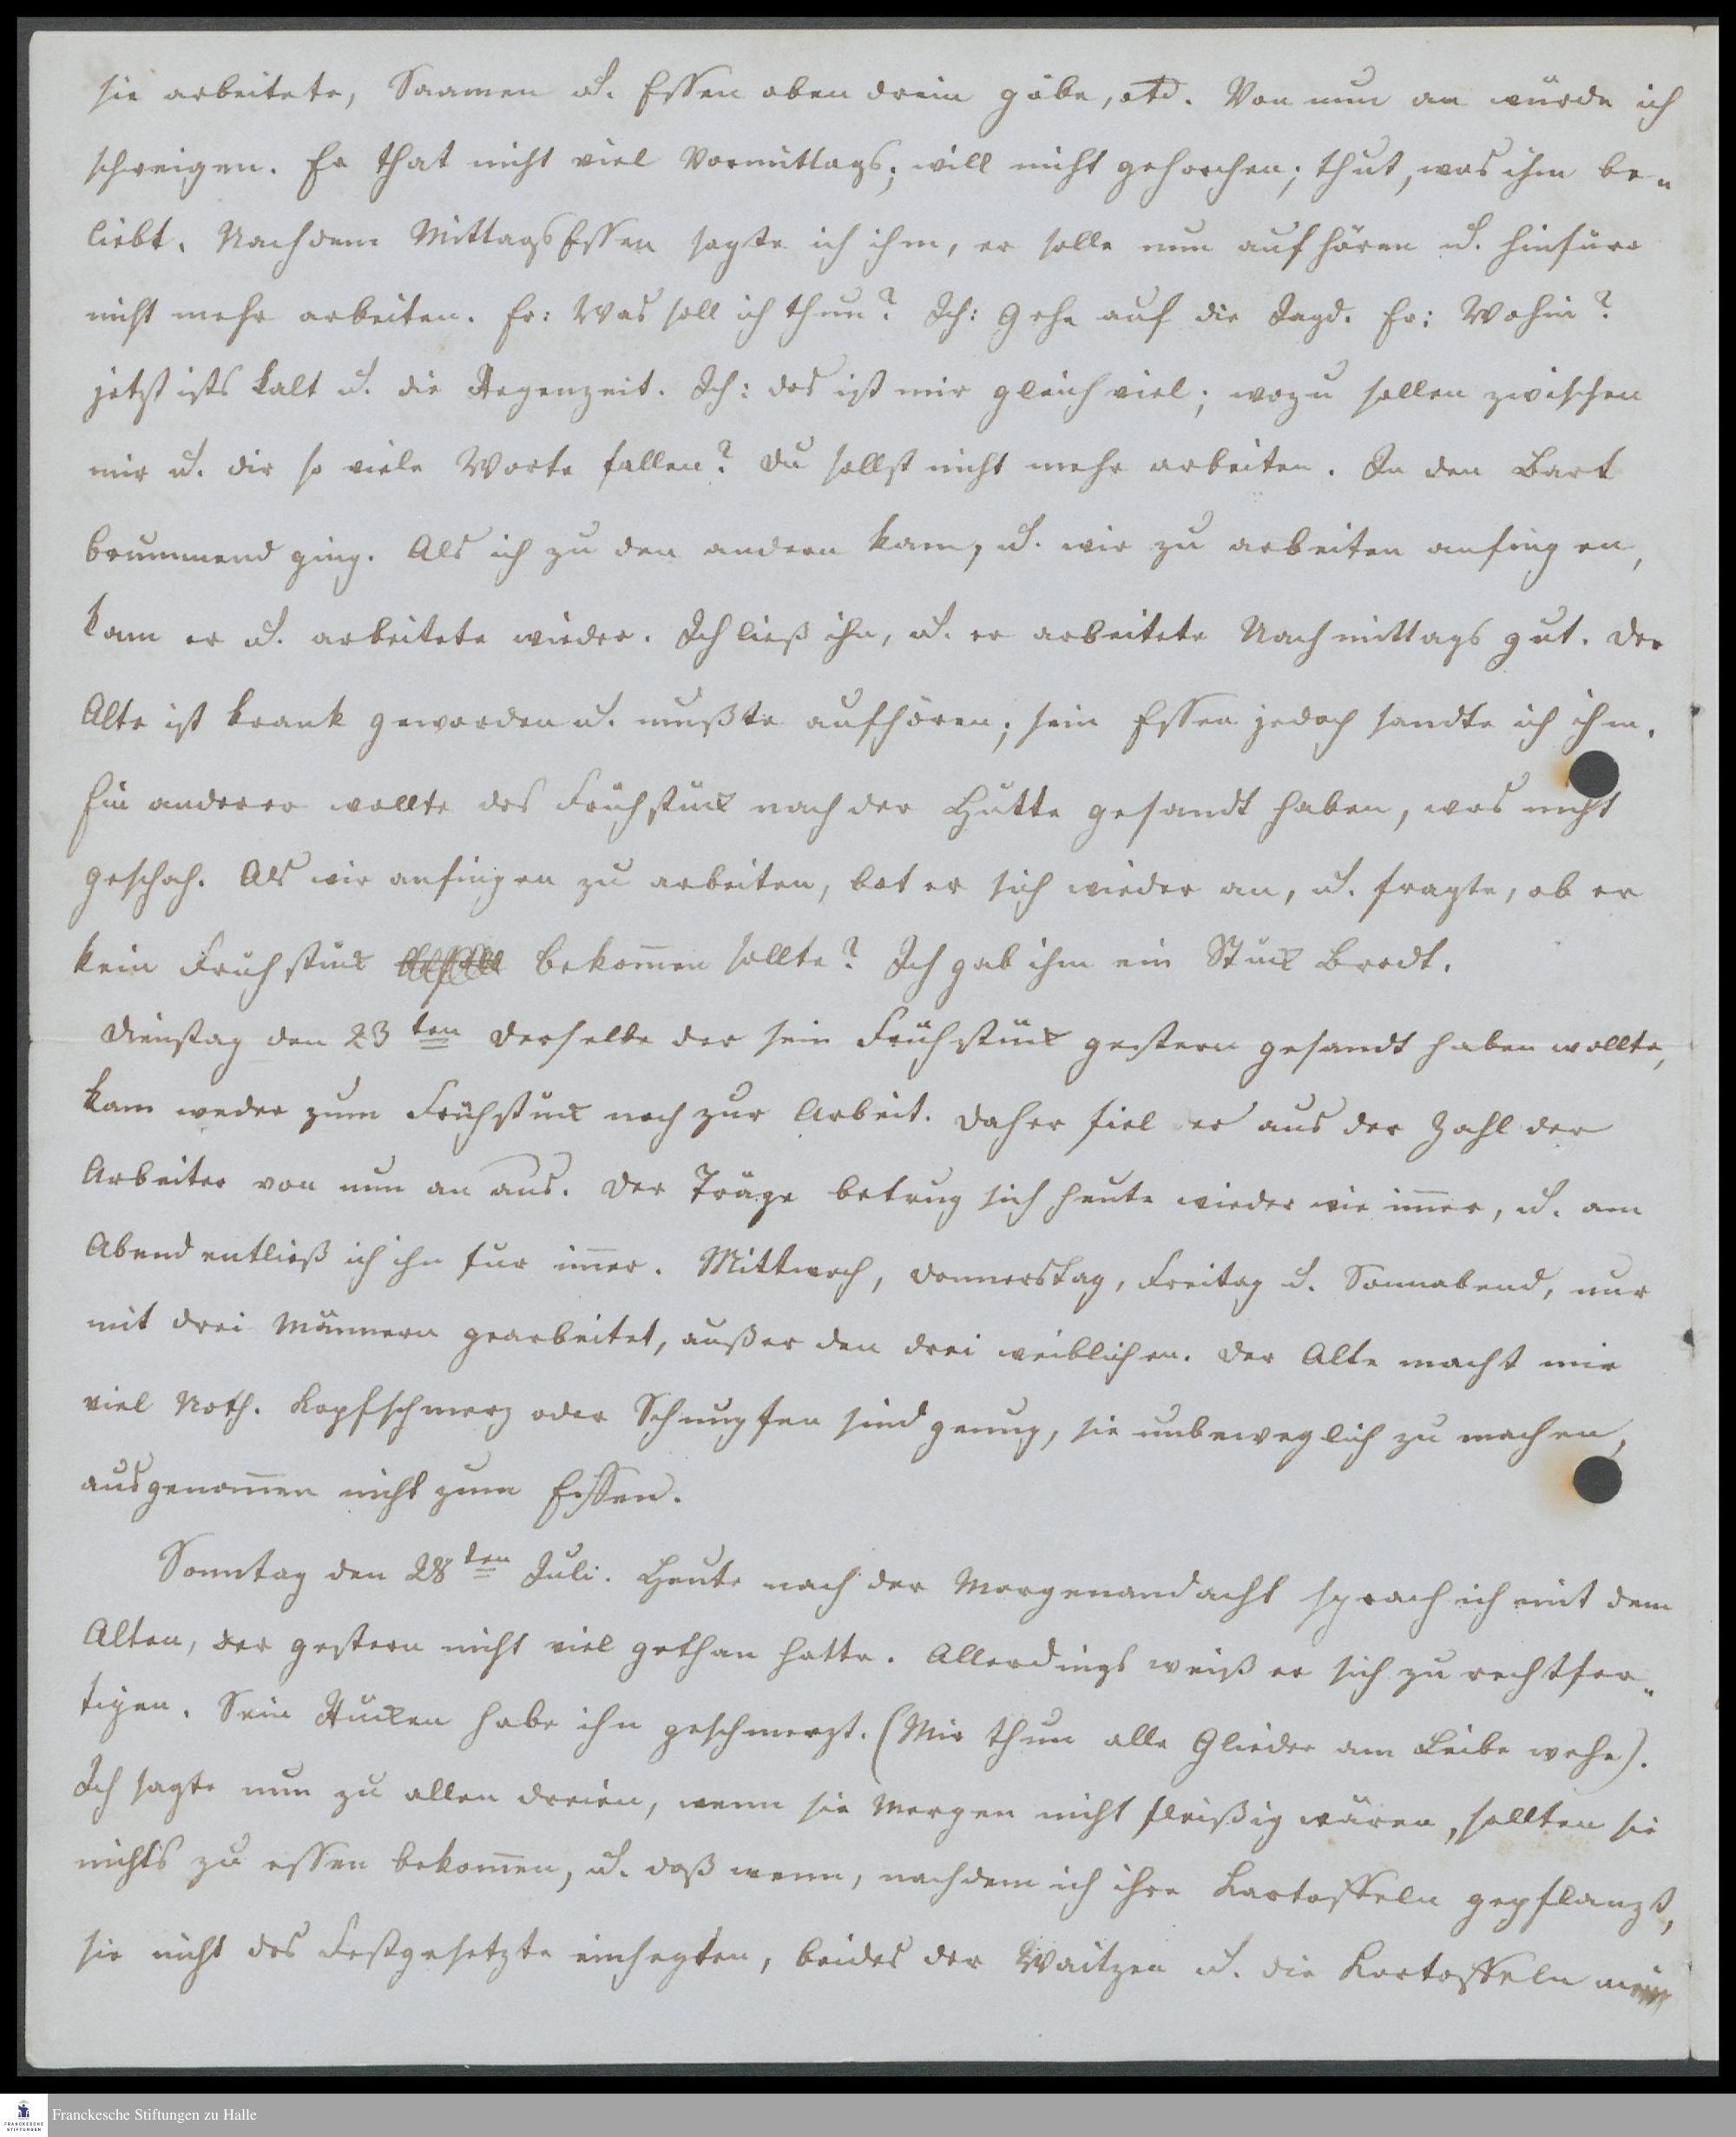 sie arbeitete, Saamen u. Essen oben drein gäbe, etc. Von nun an würde ich
schweigen. Er that nicht viel Vormittags; will nicht gehorchen; thut, was ihm be-
liebt. Nachdem MittagsEssen sagte ich ihm, er solle nun aufhören u. hinfüro
nicht mehr arbeiten. Er: Was soll ich thun? Ich: Gehe auf die Jagd. Er: Wohin?
jetzt ists kalt u. die Regenzeit. Ich: das ist mir gleich viel; wozu sollen zwischen
mir u. dir so viele Worte fallen? Du sollst nicht mehr arbeiten. In den Bart
brummend ging. Als ich zu den andern kam, u. wir zu arbeiten anfingen,
kam er u. arbeitete wieder. Ich ließ ihn, u. er arbeitete Nachmittags gut. Der
Alte ist krank geworden u. mußte aufhören; sein Essen jedoch sandte ich ihm.
Ein anderer wollte das Frühstück nach der Hütte gesandt haben, was nicht
geschah. Als wir anfingen zu arbeiten, bot er sich wieder an, u. fragte, ob er
kein Frühstück bekom̅en sollte? Ich gab ihm ein Stück Brodt.
Dienstag den 23ten Derselbe der sein Frühstück gestern gesandt haben wollte,
kam weder zum Frühstück noch zur Arbeit. Daher fiel er aus der Zahl der
Arbeiter von nun an aus. Der Träge betrug sich heute wieder wie im̅er, u. am
Abend entließ ich ihn für im̅er. Mittwoch, Donnerstag, Freitag u. Sonnabend, nur
mit drei Männern gearbeitet, außer den drei weiblichen. Der Alte macht mir
viel Noth. Kopfschmerz oder Schnupfen sind genug, sie unbeweglich zu machen,
ausgenom̅en nicht zum Essen.
Sonntag den 28ten Juli. Heute nach der Morgenandacht sprach ich mit dem
Alten, der gestern nicht viel gethan hatte. Allerdings weiß er sich zu rechtfer-
tigen. Sein Rücken habe ihn geschmerzt. (Mir thun alle Glieder am Leibe wehe).
Ich sagte nun zu allen dreien, wenn sie Morgen nicht fleißig wären, sollten sie
nichts zu essen bekom̅en, u. daß wenn, nachdem ich ihre Kartoffeln gepflanzt,
sie nicht das Festgesetzte einhegten, beides der Waitzen u. die Kartoffeln mein
Franckesche Stiftungen zu Halle
FRANCKESCHE
STIFTUNGEN